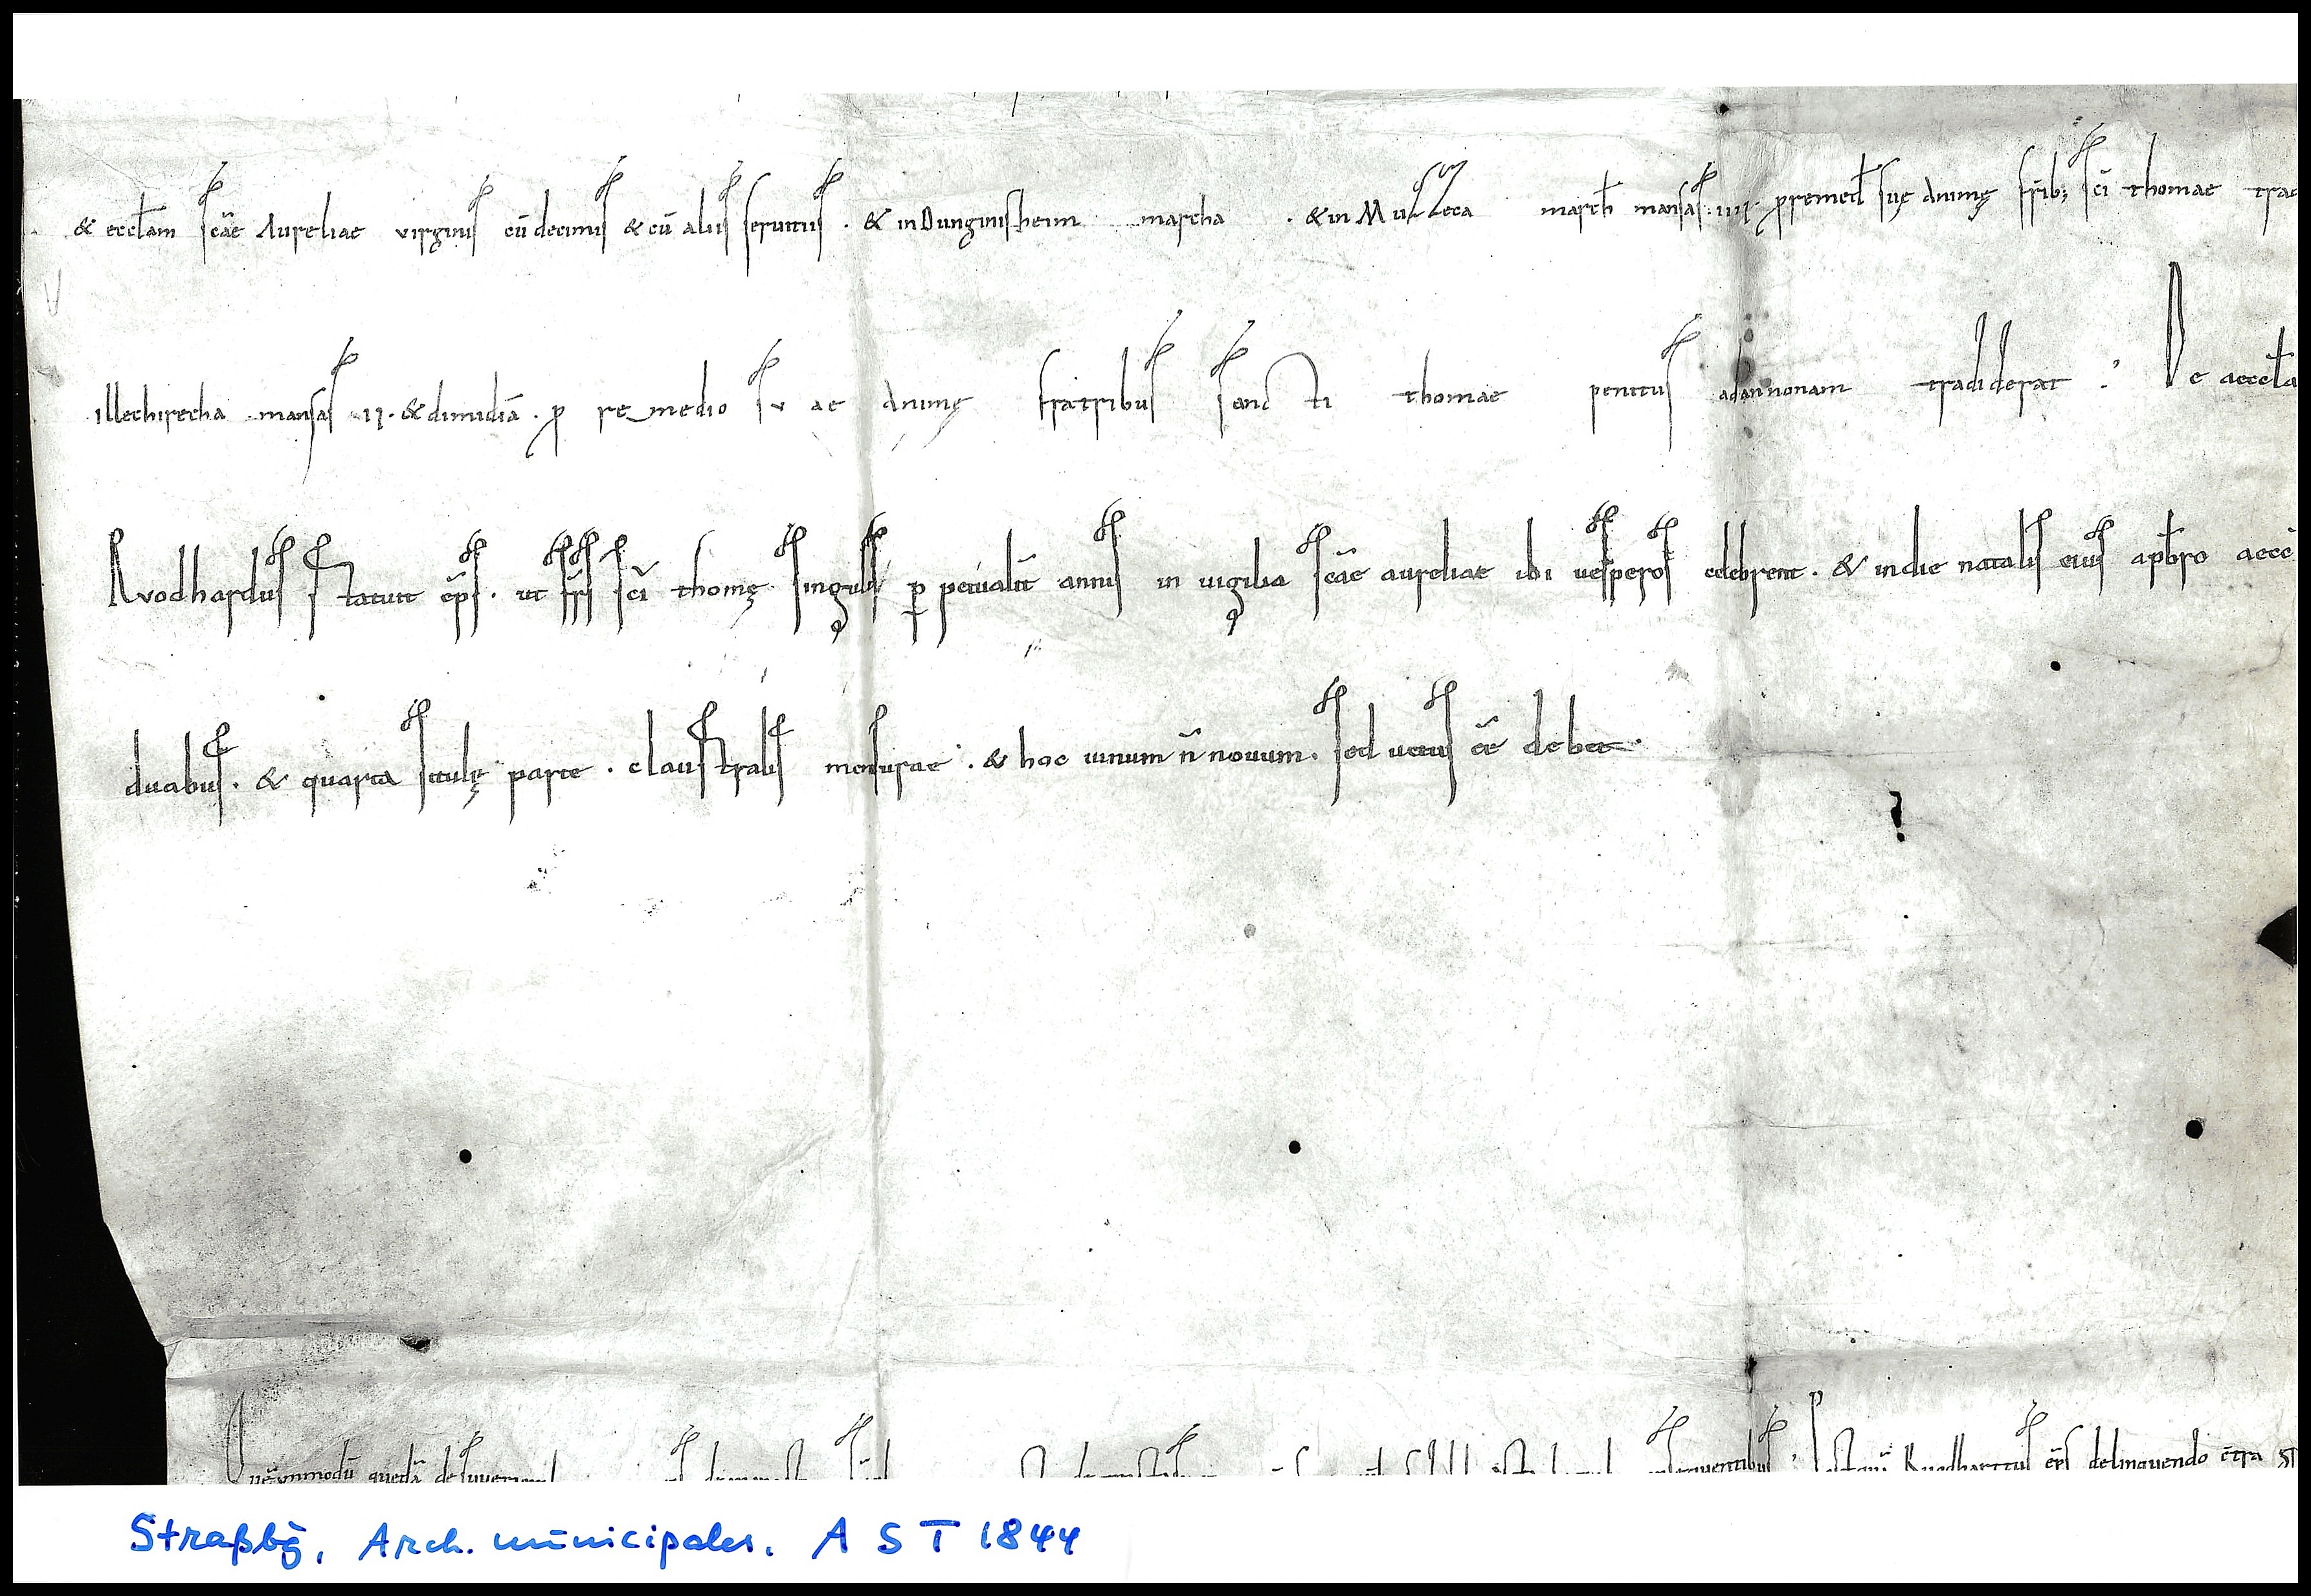 & eccłam scāe Aureliae virginis cū decimis & cū aliis seruitiis . & in Dunginisheim marcha . & in Mulleca march mansas .IIII. p remeđ suę Animę frīb; scī thomae trad
illechirecha mansas II. & dimidiā . p remedio suae Animę fratribus sancti thomae penitus ad annonam tradiderat : De aeccła
Ruodhardus statuit ēps . ut frs scī thomę singulis p petualit annis in uigilia scāe aureliae ibi uesperos celebrent . & in die natalis eius a pbro aecc
duabus . & quarta situlę parte . claustralis mensurae . & hoc uinum n̄ nouum . sed uetus eē debet .
quedā
Ruodharttus ēps delinquendo ctra
Straßbg, Arch. municipales. A S T 1844